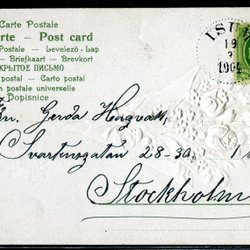 Carte Postale
arte – Post card
Postale – Levelező-Lap
– Briefkaart – Brevkort
КРЫТОЕ ПИСЬМО
postal – Carto postal
n postale universelle
Dopisnice
ISU
19
3
190
Gerda
Svartensgatan 28-30, 1
Stockholm